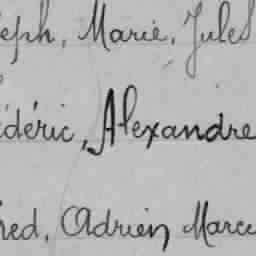 eph, Marie, Jules
édéric, Alexandre
red, Adrien Marce